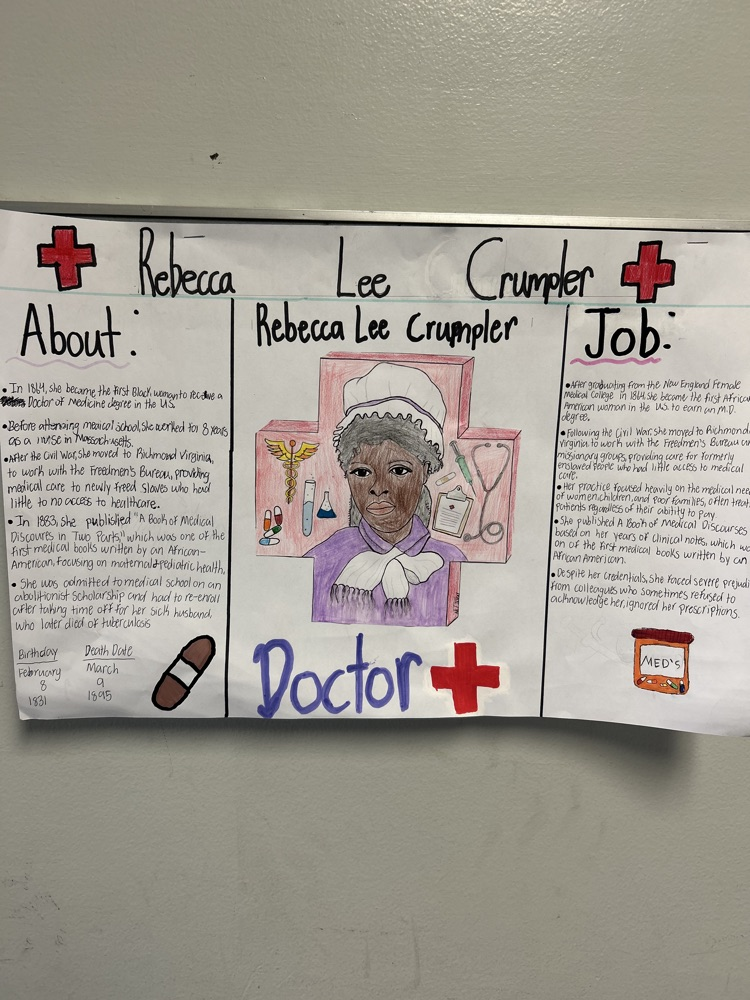 Rebecca Lee Crumpler
About:
• In 1864, she became the first Black woman to receive a
Doctor of Medicine degree in the U.S.
• Before attending medical school, she worked for 8 years
as a nurse in Massachusetts.
• After the Civil War, she moved to Richmond Virginia,
to work with the Freedmen's Bureau, providing
medical care to newly freed slaves who had
little to no access to healthcare.
• In 1883, she published "A Book of Medical
Discourses in Two Parts," which was one of the
first medical books written by an African-
American, focusing on maternal & pediatric health.
• She was admitted to medical school on an
abolitionist Scholarship and had to re-enroll
after taking time off for her sick husband,
who later died of tuberculosis
Birthday
February
8
1831
Death Date
March
9
1895
Rebecca Lee Crumpler
Doctor
Job:
• After graduating from the New England Female
Medical College in 1864, she became the first African
American woman in the U.S. to earn an M.D.
degree.
• Following the Civil War, she moved to Richmond
Virginia to work with the Freedmen's Bureau
missionary groups, providing care for formerly
enslaved people who had little access to medical
care.
• Her practice focused heavily on the medical
of women, children, and poor families, often
patients regardless of their ability to pay.
• She published A Book of Medical Discourses
based on her years of clinical notes, which
on of the first medical books written by an
African American.
• Despite her credentials, she faced severe
from colleagues who sometimes refused to
acknowledge her, ignored her prescriptions.
MED'S